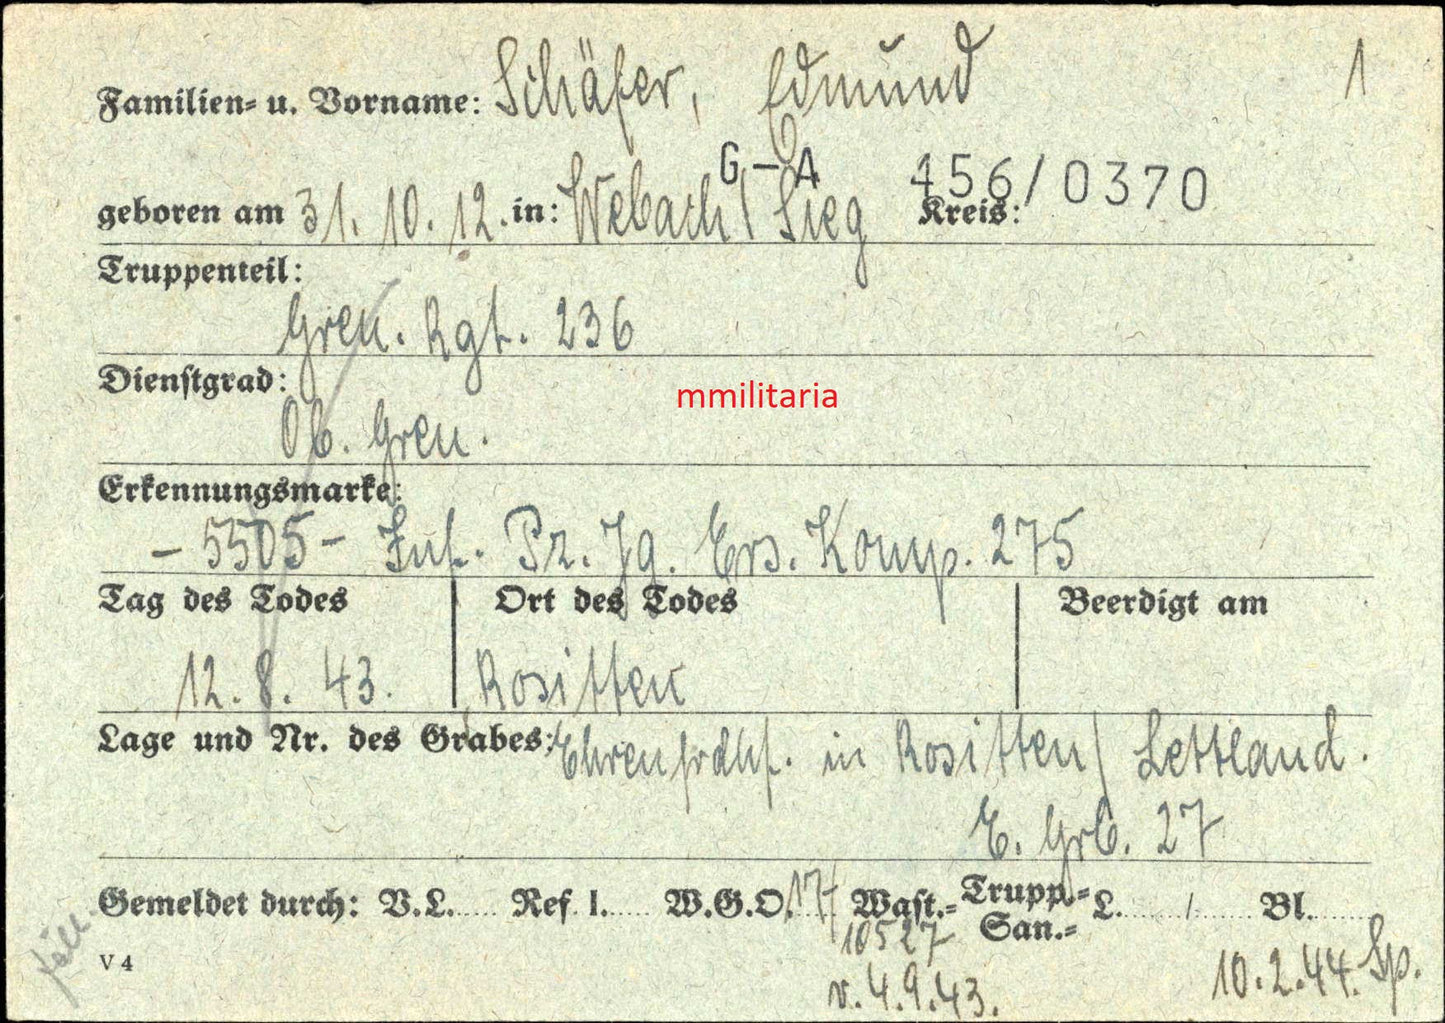 1
Familien- u. Vorname: Schäfer, Edmund
G-A 456/0370
geboren am 31. 10. 12. in: Webach / Sieg Kreis:
Truppenteil:
Gren. Rgt. 236
Dienstgrad:
mmilitaria
Ob. Gren.
Erkennungsmarke:
- 5505 - Inf. Pz. Jg. Ers. Komp. 275
Tag des Todes Ort des Todes Beerdigt am
12. 8. 43. Rositten
Lage und Nr. des Grabes: Ehrenfrdhf. in Rositten / Lettland.
E. Grb. 27
Gemeldet durch: V.L. Ref. I. W.G.O. 17 Wast.= Trupp.= L. / Bl.
10527 San.=
V 4
v. 4.9.43. 10.2.44. Sp.